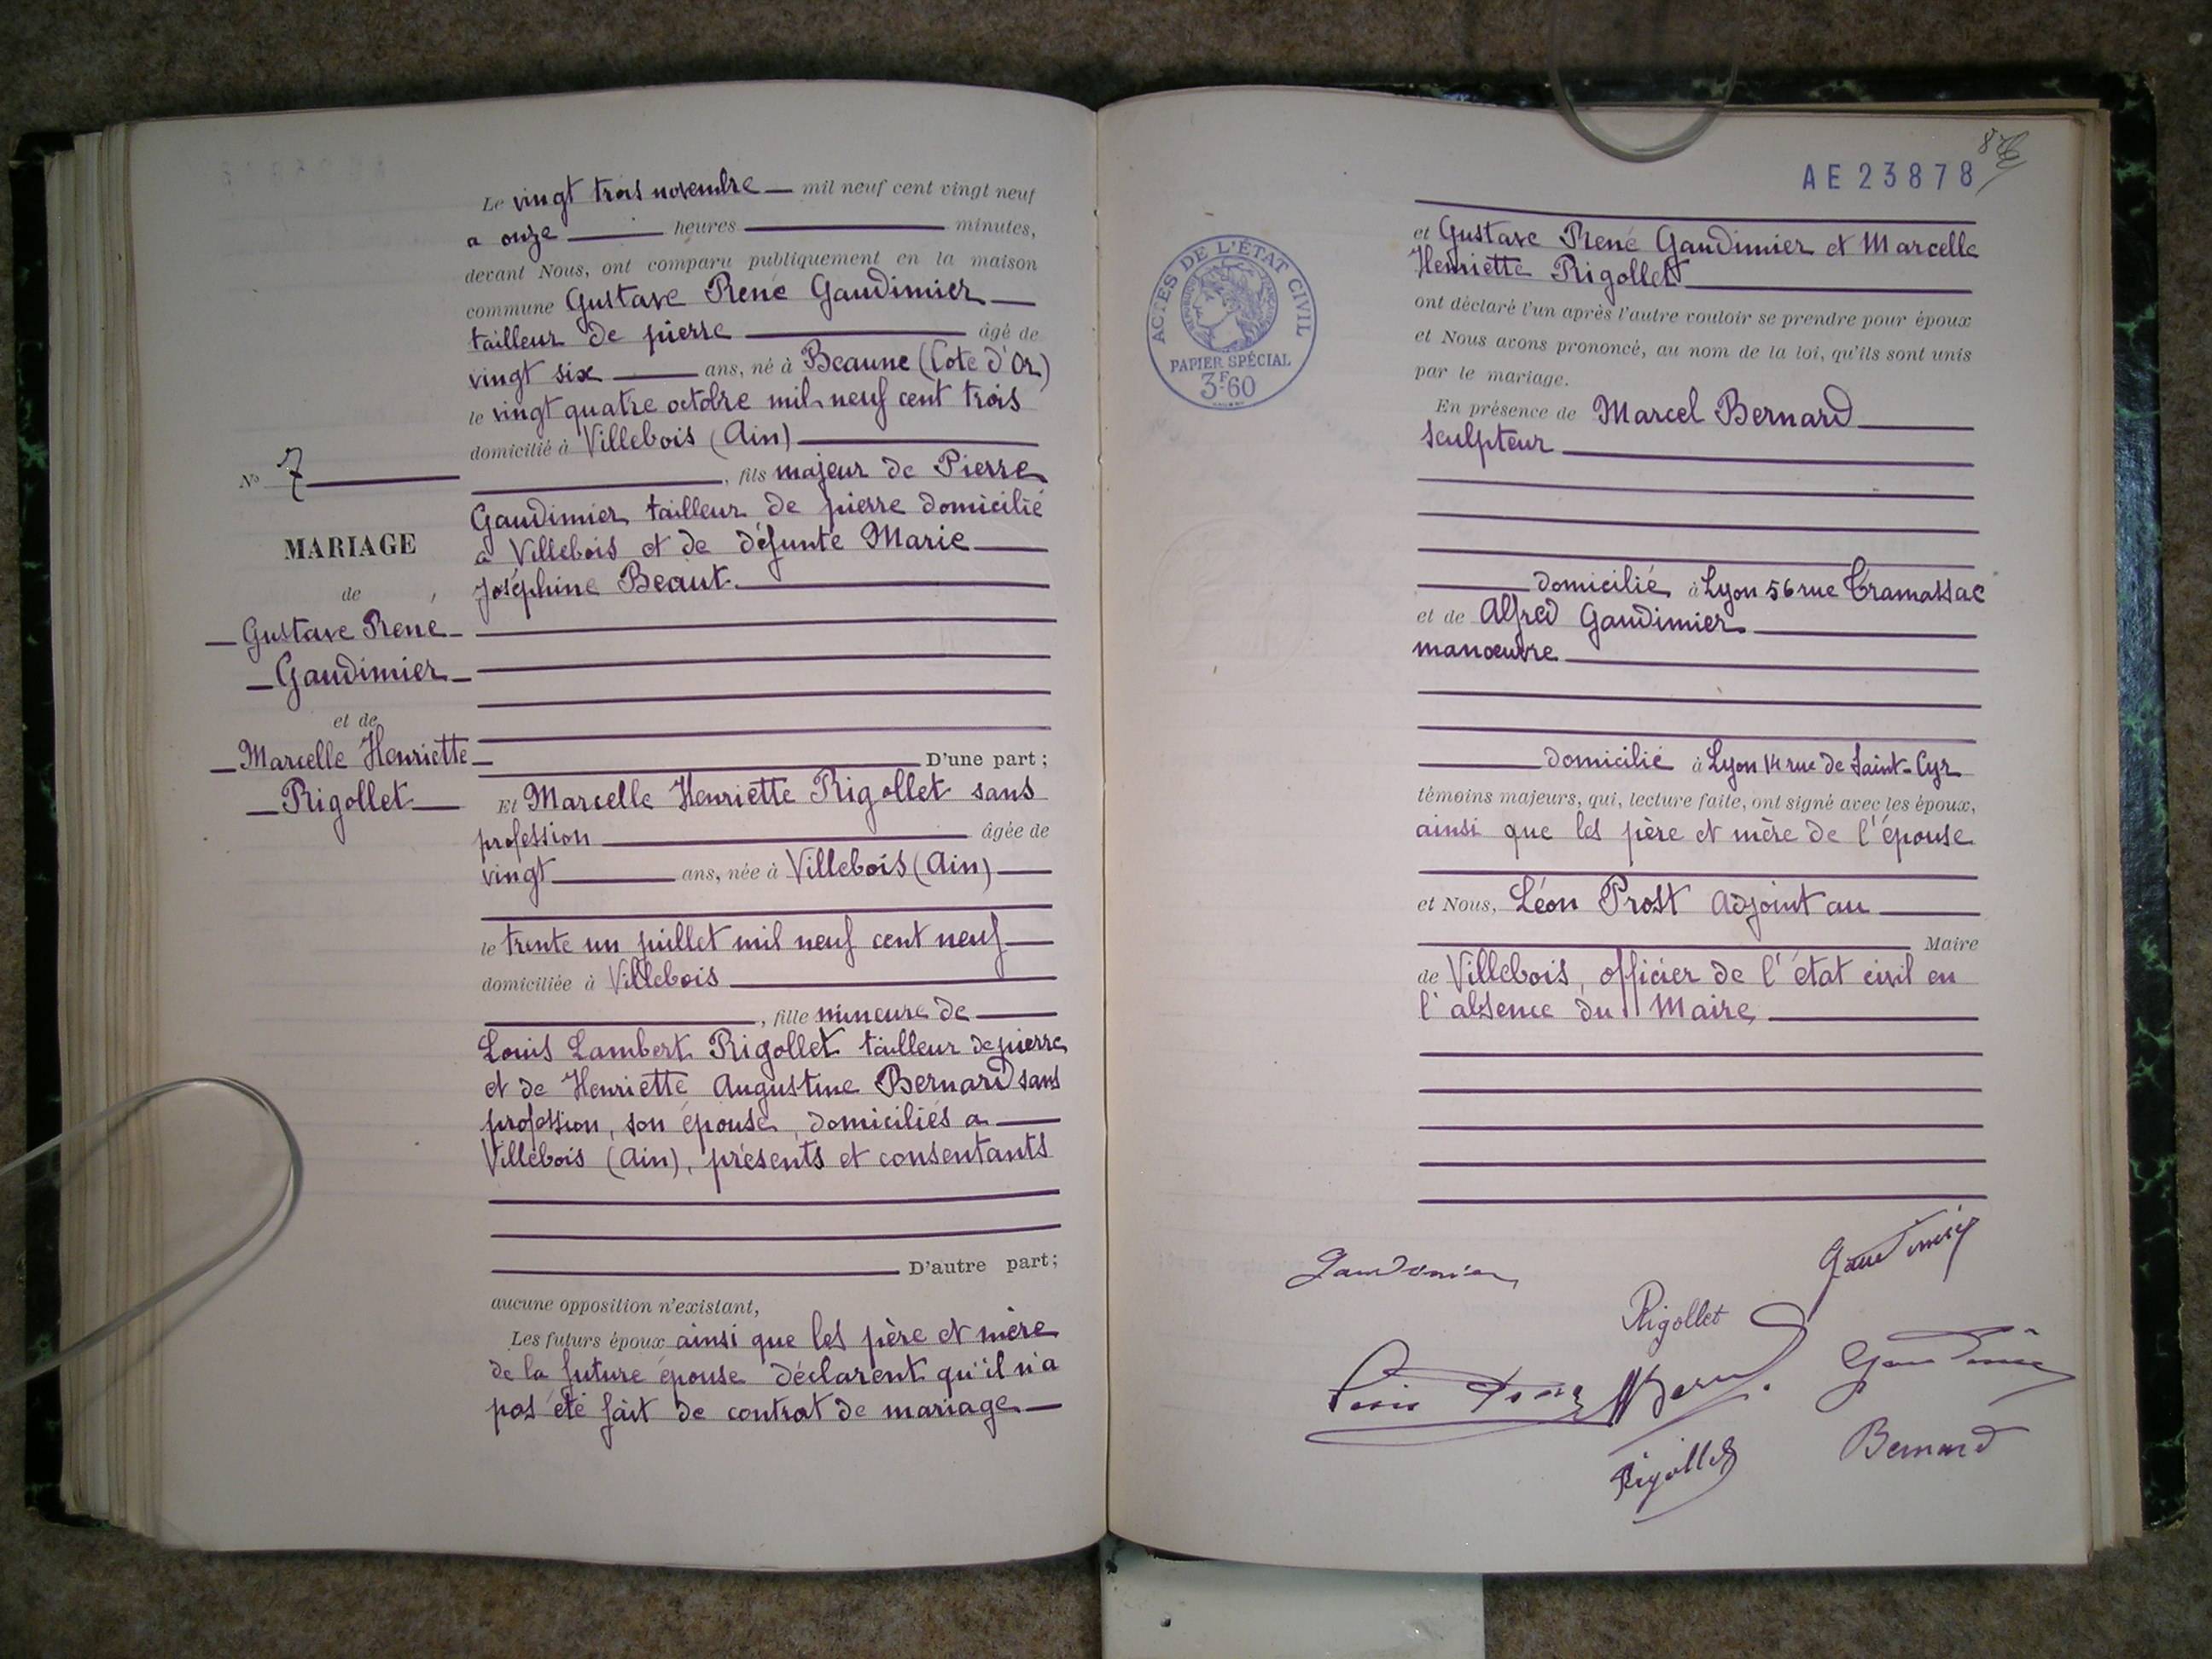 Le vingt trois novembre mil neuf cent vingt neuf
a onze heures minutes,
devant Nous, ont comparu publiquement en la maison
commune Gustave René Gaudimier
tailleur de pierre âgé de
vingt six ans, né à Beaune (Cote d'Or)
le vingt quatre octobre mil neuf cent trois
domicilié à Villebois (Ain)
, fils majeur de Pierre
Gaudimier tailleur de pierre domicilié
a Villebois et de défunte Marie
Joséphine Beaut.
D'une part;
Et Marcelle Henriette Rigollet sans
profession âgée de
vingt ans, née à Villebois (Ain)
le trente un juillet mil neuf cent neuf
domiciliée à Villebois
, fille mineure de
Louis Lambert Rigollet tailleur de pierre
et de Henriette Augustine Bernard sans
profession, son épouse, domiciliés a
Villebois (Ain), présents et consentants
D'autre part;
aucune opposition n'existant,
Les futurs époux ainsi que les père et mère
de la future épouse déclarent qu'il n'a
pas été fait de contrat de mariage
No 7
MARIAGE
de
Gustave René
Gaudimier
et de
Marcelle Henriette
Rigollet
AE 23878
ACTES DE L'ÉTAT CIVIL
PAPIER SPÉCIAL
3F.60
et Gustave René Gaudimier et Marcelle
Henriette Rigollet
ont déclaré l'un après l'autre vouloir se prendre pour époux
et Nous avons prononcé, au nom de la loi, qu'ils sont unis
par le mariage.
En présence de Marcel Bernard
sculpteur
domicilié à Lyon 56 rue Tramassac
et de Alfred Gaudimier
manœuvre
domicilié à Lyon 14 rue de Saint-Cyr
témoins majeurs, qui, lecture faite, ont signé avec les époux,
ainsi que les père et mère de l'épouse
et Nous, Léon Prost adjoint au
Maire
de Villebois, officier de l'état civil en
l'absence du Maire
Gaudimier
Gaudimier
Rigollet
Gaudimier
Rigollet
Bernard